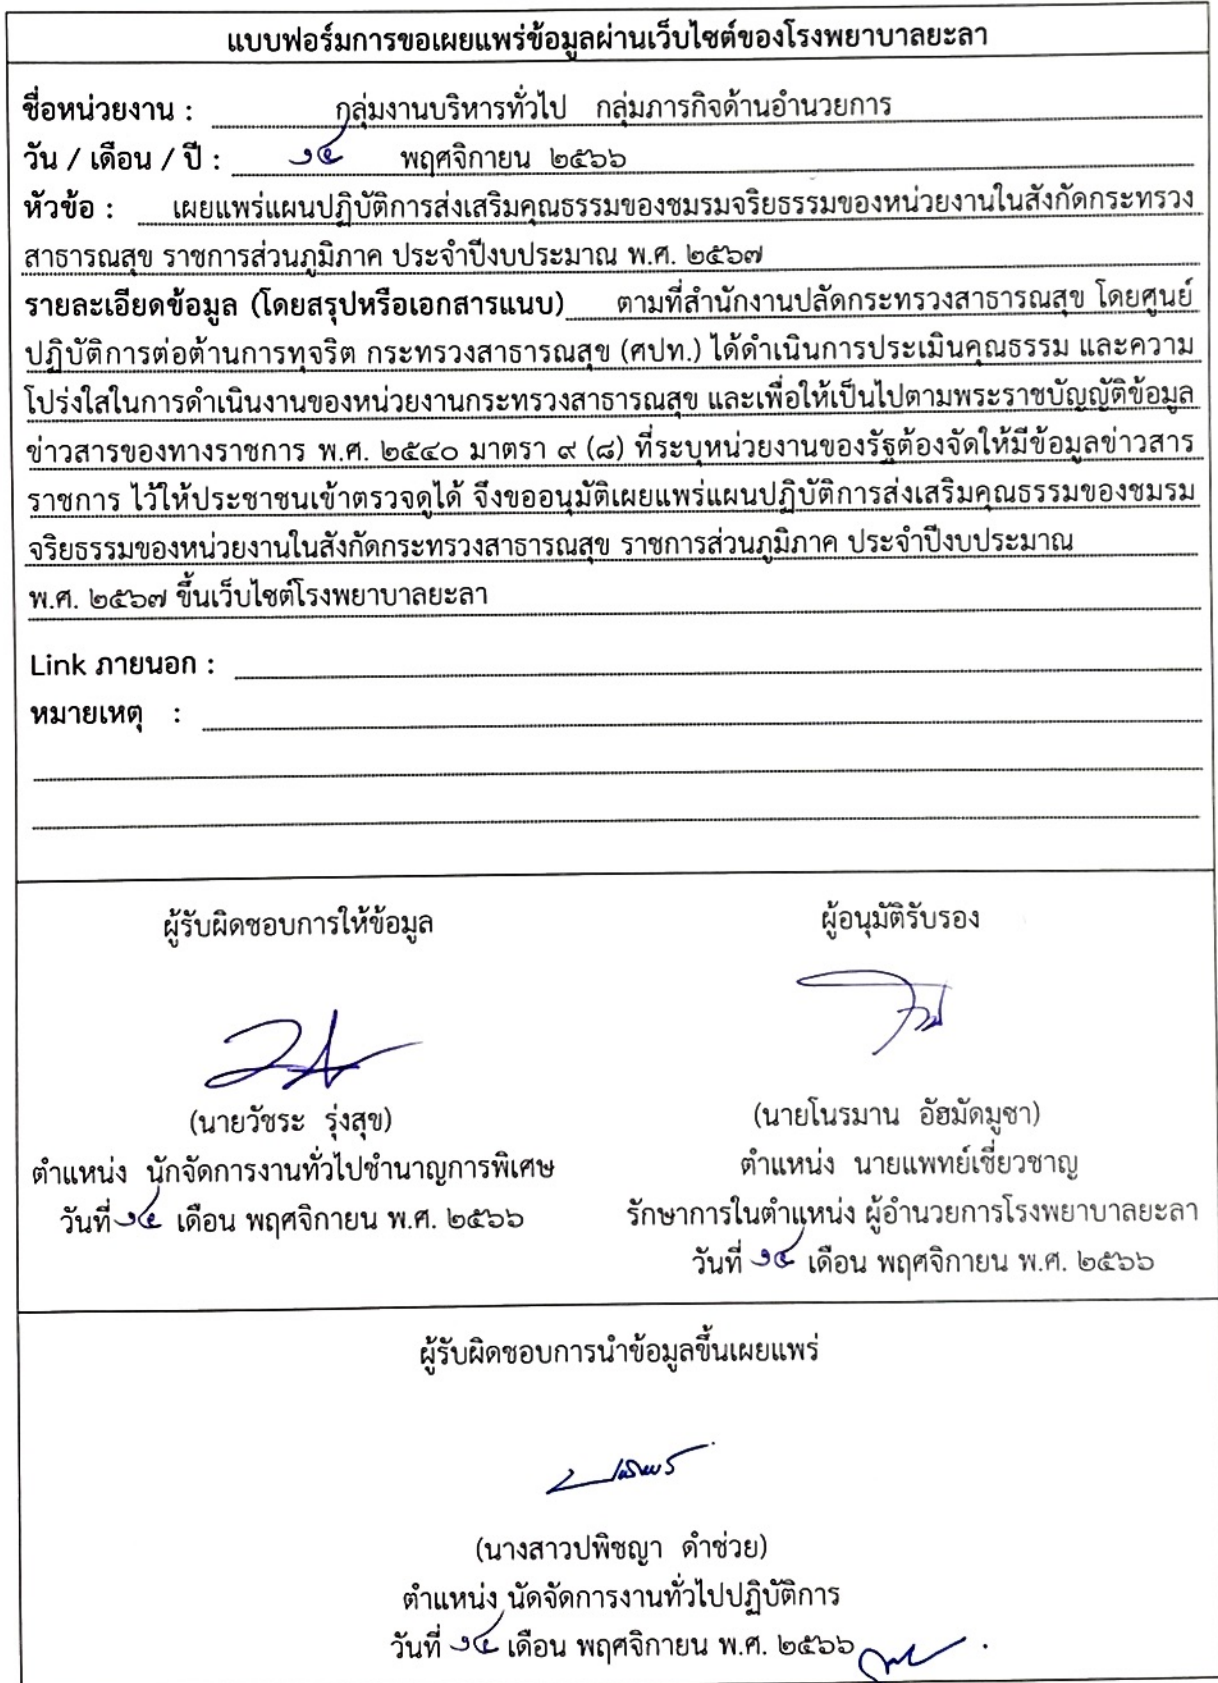 แบบฟอร์มการขอเผยแพร่ข้อมูลผ่านเว็บไซต์ของโรงพยาบาลยะลา
ชื่อหน่วยงาน : กลุ่มงานบริหารทั่วไป กลุ่มภารกิจด้านอำนวยการ
วัน / เดือน / ปี : พฤศจิกายน ๒๕๖๖
หัวข้อ : เผยแพร่แผนปฏิบัติการส่งเสริมคุณธรรมของชมรมจริยธรรมของหน่วยงานในสังกัดกระทรวง
สาธารณสุข ราชการส่วนภูมิภาค ประจำปีงบประมาณ พ.ศ. ๒๕๖๗
รายละเอียดข้อมูล (โดยสรุปหรือเอกสารแนบ) ตามที่สำนักงานปลัดกระทรวงสาธารณสุข โดยศูนย์
ปฏิบัติการต่อต้านการทุจริต กระทรวงสาธารณสุข (ศปท.) ได้ดำเนินการประเมินคุณธรรม และความ
โปร่งใสในการดำเนินงานของหน่วยงานกระทรวงสาธารณสุข และเพื่อให้เป็นไปตามพระราชบัญญัติข้อมูล
ข่าวสารของทางราชการ พ.ศ. ๒๕๔๐ มาตรา ๙ (๘) ที่ระบุหน่วยงานของรัฐต้องจัดให้มีข้อมูลข่าวสาร
ราชการ ไว้ให้ประชาชนเข้าตรวจดูได้ จึงขออนุมัติเผยแพร่แผนปฏิบัติการส่งเสริมคุณธรรมของชมรม
จริยธรรมของหน่วยงานในสังกัดกระทรวงสาธารณสุข ราชการส่วนภูมิภาค ประจำปีงบประมาณ
พ.ศ. ๒๕๖๗ ขึ้นเว็บไซต์โรงพยาบาลยะลา
Link ภายนอก :
หมายเหตุ :
ผู้รับผิดชอบการให้ข้อมูล
(นายวัชระ รุ่งสุข)
ตำแหน่ง นักจัดการงานทั่วไปชำนาญการพิเศษ
วันที่ เดือน พฤศจิกายน พ.ศ. ๒๕๖๖
ผู้อนุมัติรับรอง
(นายโนรมาน อัฮมัดมูซา)
ตำแหน่ง นายแพทย์เชี่ยวชาญ
รักษาการในตำแหน่ง ผู้อำนวยการโรงพยาบาลยะลา
วันที่ เดือน พฤศจิกายน พ.ศ. ๒๕๖๖
ผู้รับผิดชอบการนำข้อมูลขึ้นเผยแพร่
(นางสาวปพิชญา ดำช่วย)
ตำแหน่ง นัดจัดการงานทั่วไปปฏิบัติการ
วันที่ เดือน พฤศจิกายน พ.ศ. ๒๕๖๖